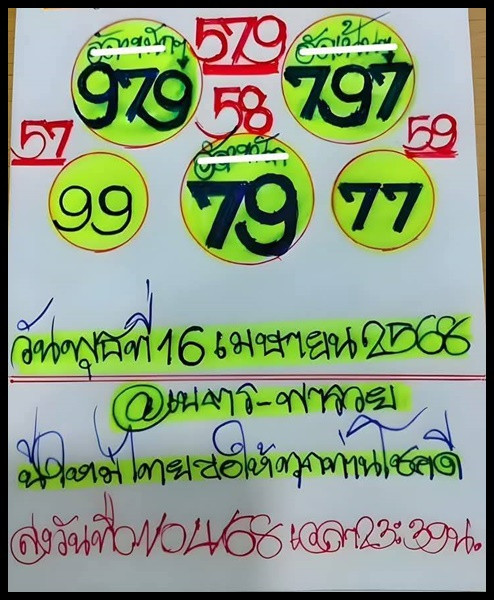 579
979
797
58
57
59
99
79
77
วันพุธที่ 16 เมษายน 2568
@เบนาริ-พารวย
ปีใหม่ไทยขอให้ทุกท่านโชคดี
ส่งวันที่ 68 เวลา 23:39น.